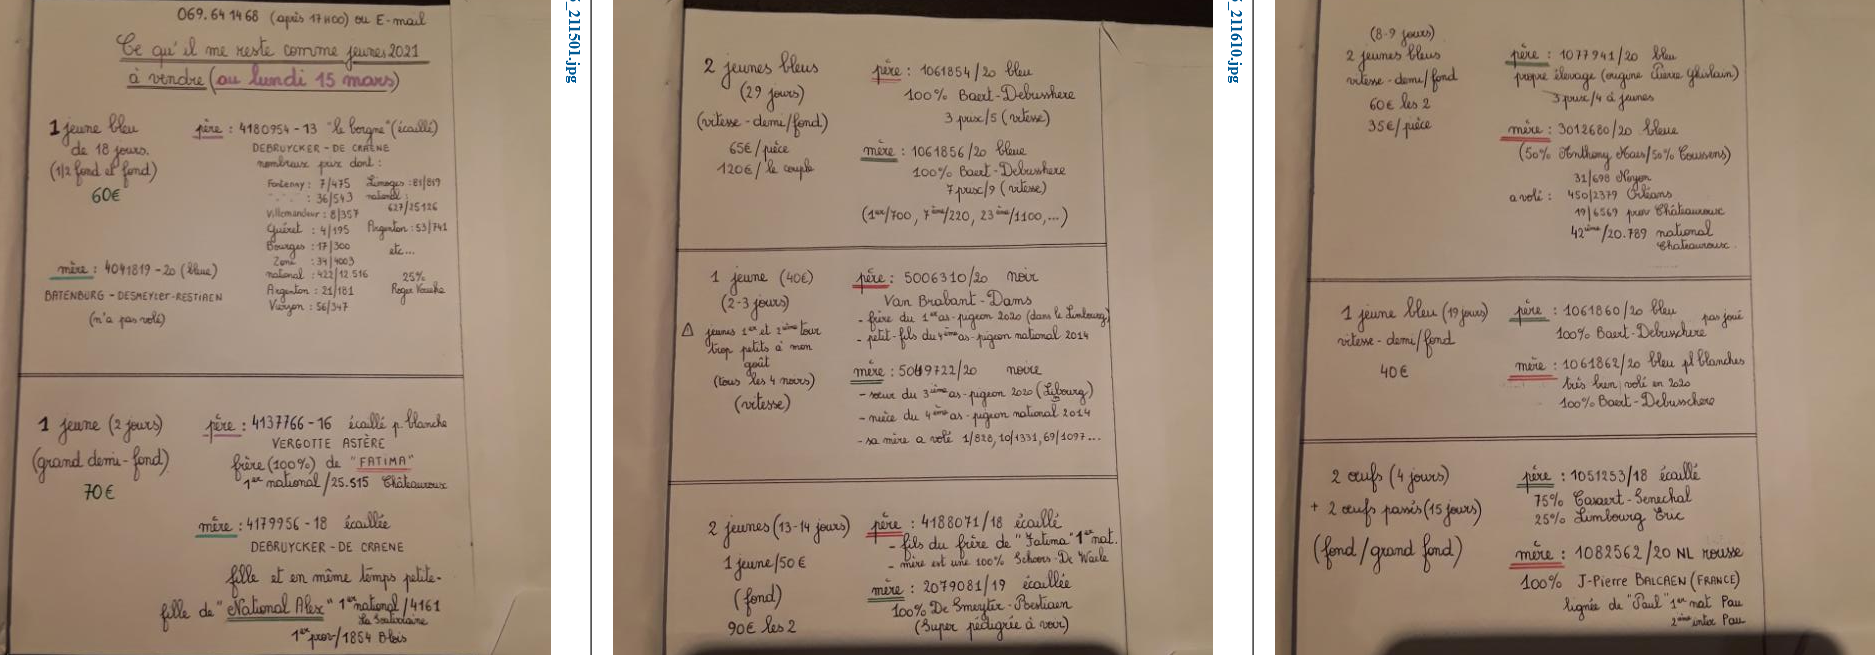 069.64 14 68 (après 17H00) ou E-mail
Ce qu'il me reste comme jeunes 2021
à vendre (au lundi 15 mars)
1 jeune bleu
de 18 jours.
(1/2 fond et fond)
60€
père : 4180954-13 "le borgne" (écaillé)
DEBRUYCKER - DE CRAENE
nombreux prix dont :
Fontenay : 7/475
: 36/543
Villemandeur : 8/357
Guéret : 4/195
Bourges : 17/300
Zone : 34/4003
national : 422/12.516
Argenton : 21/181
Vierzon : 56/347
Limoges : 81/819
national :
627/25126
Argenton : 53/741
etc...
25%
Roger
mère : 4041819-20 (bleue)
BATENBURG - DESMEYTER-RESTIAEN
(n'a pas volé)
1 jeune (2 jours)
(grand demi-fond)
70€
père : 4137766-16 écaillé p. blanche
VERGOTTE ASTÈRE
frère (100%) de "FATIMA"
1er national/25.515 Châteauroux
mère : 4179956-18 écaillée
DEBRUYCKER - DE CRAENE
fille et en même temps petite-
fille de "National Alex" 1er national/4161
La Souterraine
1er prov/1854 Blois
5_211501.jpg
2 jeunes bleus
(29 jours)
(vitesse-demi/fond)
65€/pièce
120€/le couple
père : 1061854/20 bleu
100% Baert-Debusschere
3 prix/5 (vitesse)
mère : 1061856/20 bleue
100% Baert-Debusschere
7 prix/9 (vitesse)
(1er/700, 7ième/220, 23ième/1100,...)
1 jeune (40€)
(2-3 jours)
⚠ jeunes 1er et 2ième tour
trop petits à mon
goût
(tous les 4 noirs)
(vitesse)
père : 5006310/20 noir
Van Brabant-Dams
- frère du 1er as-pigeon 2020 (dans le Limbourg)
- petit-fils du 4ième as-pigeon national 2014
mère : 5049722/20 noire
- sœur du 3ième as-pigeon 2020 (Limbourg)
- nièce du 4ième as-pigeon national 2014
- sa mère a volé 1/828, 10/1331, 69/1097...
2 jeunes (13-14 jours)
1 jeune/50€
(fond)
90€ les 2
père : 4188071/18 écaillé
- fils du frère de "Fatima" 1er nat.
- mère est une 100% Schoors-De Waele
mère : 2079081/19 écaillée
100% De Smeyter-Restiaen
(Super pédigrée à voir)
5_211610.jpg
(8-9 jours)
2 jeunes bleus
vitesse-demi/fond
60€ les 2
35€/pièce
père : 1077941/20 bleu
propre élevage (origine Pierre Ghislain)
3 prix/4 à jeunes
mère : 3012680/20 bleue
(50% Anthony Maes/50% Coussens)
31/698 Noyon
a volé : 450/2379 Orléans
19/6569 prov Châteauroux
42ième/20.789 national
Chateauroux.
1 jeune bleu (19 jours)
vitesse-demi/fond
40€
père : 1061860/20 bleu pas joué
100% Baert-Debusschere
mère : 1061862/20 bleu pl blanches
très bien volé en 2020
100% Baert-Debusschere
2 œufs (4 jours)
+ 2 œufs passés (15 jours)
(fond/grand fond)
père : 1051253/18 écaillé
75% Casaert-Senechal
25% Limbourg Eric
mère : 1082562/20 NL rousse
100% J-Pierre BALCAEN (FRANCE)
lignée de "Paul" 1er nat Pau
2ième inter Pau